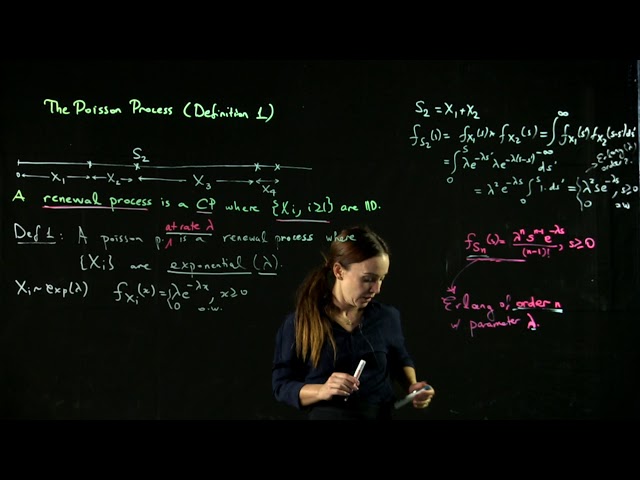 The Poisson Process (Definition 1)
S₂
0 X₁ X₂ X₃ X₄
A renewal process is a CP where {Xᵢ, i≥1} are IID.
at rate λ
Def 1: A poisson p. is a renewal process where
{Xᵢ} are exponential (λ).
Xᵢ ~ exp(λ) f_{Xᵢ}(x) = { λe^{-λx}, x≥0
0 o.w.
S₂ = X₁ + X₂
f_{S₂}(s) = f_{X₁}(s) * f_{X₂}(s) = ∫_{-∞}^{∞} f_{X₁}(s') f_{X₂}(s-s') ds'
= ∫_0^s λe^{-λs'} λe^{-λ(s-s')} ds'
Erlang(λ)
order 2
= λ² e^{-λs} ∫_0^s 1 · ds' = { λ² s e^{-λs}, s≥0
0 o.w
f_{Sₙ}(s) = λⁿ s^{n-1} e^{-λs} / (n-1)! , s≥0
Erlang of order n
w parameter λ.